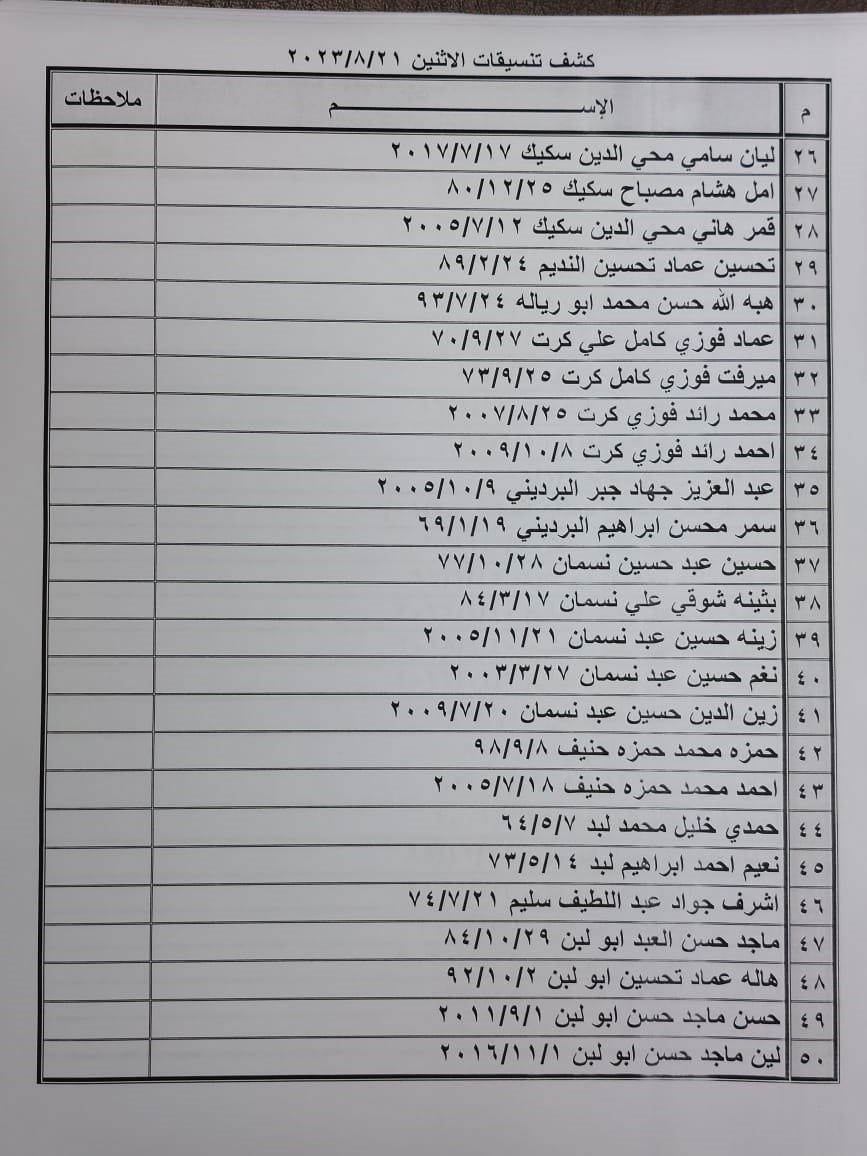 كشف تنسيقات الاثنين ٢٠٢٣/٨/٢١
م الإســـــــــــم ملاحظات
٢٦ ليان سامي محي الدين سكيك ٢٠١٧/٧/١٧
٢٧ امل هشام مصباح سكيك ٨٠/١٢/٢٥
٢٨ قمر هاني محي الدين سكيك ٢٠٠٥/٧/١٢
٢٩ تحسين عماد تحسين النديم ٨٩/٢/٢٤
٣٠ هبه الله حسن محمد ابو رياله ٩٣/٧/٢٤
٣١ عماد فوزي كامل علي كرت ٧٠/٩/٢٧
٣٢ ميرفت فوزي كامل كرت ٧٣/٩/٢٥
٣٣ محمد رائد فوزي كرت ٢٠٠٧/٨/٢٥
٣٤ احمد رائد فوزي كرت ٢٠٠٩/١٠/٨
٣٥ عبد العزيز جهاد جبر البرديني ٢٠٠٥/١٠/٩
٣٦ سمر محسن ابراهيم البرديني ٦٩/١/١٩
٣٧ حسين عبد حسين نسمان ٧٧/١٠/٢٨
٣٨ بثينه شوقي علي نسمان ٨٤/٣/١٧
٣٩ زينه حسين عبد نسمان ٢٠٠٥/١١/٢١
٤٠ نغم حسين عبد نسمان ٢٠٠٣/٣/٢٧
٤١ زين الدين حسين عبد نسمان ٢٠٠٩/٧/٢٠
٤٢ حمزه محمد حمزه حنيف ٩٨/٩/٨
٤٣ احمد محمد حمزه حنيف ٢٠٠٥/٧/١٨
٤٤ حمدي خليل محمد لبد ٦٤/٥/٧
٤٥ نعيم احمد ابراهيم لبد ٧٣/٥/١٤
٤٦ اشرف جواد عبد اللطيف سليم ٧٤/٧/٢١
٤٧ ماجد حسن العبد ابو لبن ٨٤/١٠/٢٩
٤٨ هاله عماد تحسين ابو لبن ٩٢/١٠/٢
٤٩ حسن ماجد حسن ابو لبن ٢٠١١/٩/١
٥٠ لين ماجد حسن ابو لبن ٢٠١٦/١١/١